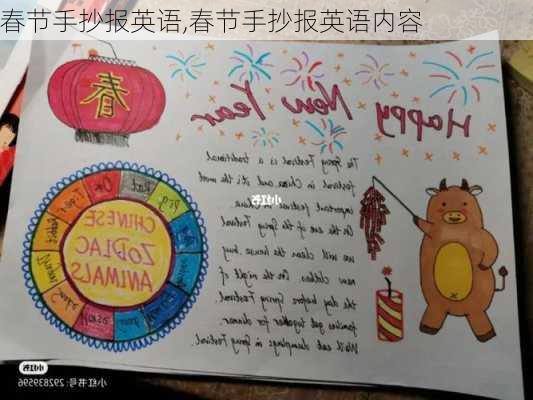 春节手抄报英语,春节手抄报英语内容
Happy New Year
春
CHINESE
ZODIAC
ANIMALS
Rat
Ox
Tiger
Rabbit
Snake
Pig
The Spring Festival is a traditional
festival in China and it's the most
important festival in China.
On the eve of the Spring Festival
we will clean the house buy
new clothes. On the night of
the day before Spring Festival
families get together for dinner.
We'll eat dumplings in Spring Festival.
小红书
小红书
小红书号: 292839596